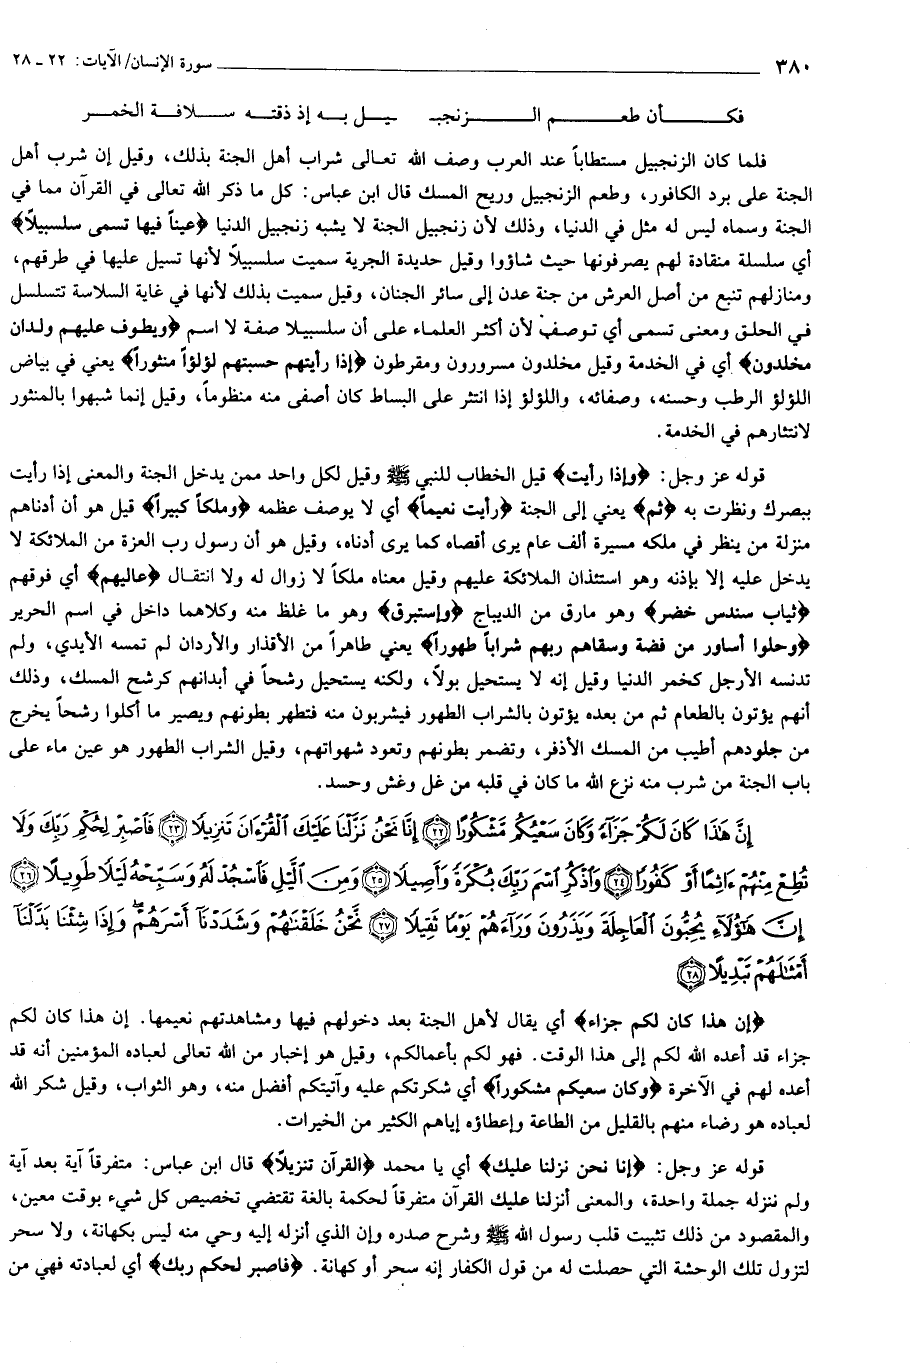 ٣٨٠ سورة الإنسان/ الآيات: ٢٢ ـ ٢٨
فكـأن طعـم الـزنجبـيـل بـه إذ ذقتـه سـلافـة الخمـر
فلما كان الزنجبيل مستطاباً عند العرب وصف الله تعالى شراب أهل الجنة بذلك، وقيل إن شرب أهل
الجنة على برد الكافور، وطعم الزنجبيل وريح المسك قال ابن عباس: كل ما ذكر الله تعالى في القرآن مما في
الجنة وسماه ليس له مثل في الدنيا، وذلك لأن زنجبيل الجنة لا يشبه زنجبيل الدنيا ﴿عيناً فيها تسمى سلسبيلاً﴾
أي سلسلة منقادة لهم يصرفونها حيث شاؤوا وقيل حديدة الجرية سميت سلسبيلاً لأنها تسيل عليها في طرقهم،
ومنازلهم تنبع من أصل العرش من جنة عدن إلى سائر الجنان، وقيل سميت بذلك لأنها في غاية السلاسة تتسلسل
في الحلق ومعنى تسمى أي توصف لأن أكثر العلماء على أن سلسبيلا صفة لا اسم ﴿ويطوف عليهم ولدان
مخلدون﴾ أي في الخدمة وقيل مخلدون مسرورون ومقرطون ﴿إذا رأيتهم حسبتهم لؤلؤاً منثوراً﴾ يعني في بياض
اللؤلؤ الرطب وحسنه، وصفائه، واللؤلؤ إذا انتثر على البساط كان أصفى منه منظوماً، وقيل إنما شبهوا بالمنثور
لانتثارهم في الخدمة.
قوله عز وجل: ﴿وإذا رأيت﴾ قيل الخطاب للنبي ﷺ وقيل لكل واحد ممن يدخل الجنة والمعنى إذا رأيت
ببصرك ونظرت به ﴿ثم﴾ يعني إلى الجنة ﴿رأيت نعيماً﴾ أي لا يوصف عظمه ﴿وملكاً كبيراً﴾ قيل هو أن أدناهم
منزلة من ينظر في ملكه مسيرة ألف عام يرى أقصاه كما يرى أدناه، وقيل هو أن رسول رب العزة من الملائكة لا
يدخل عليه إلا بإذنه وهو استئذان الملائكة عليهم وقيل معناه ملكاً لا زوال له ولا انتقال ﴿عاليهم﴾ أي فوقهم
﴿ثياب سندس خضر﴾ وهو مارق من الديباج ﴿وإستبرق﴾ وهو ما غلظ منه وكلاهما داخل في اسم الحرير
﴿وحلوا أساور من فضة وسقاهم ربهم شراباً طهوراً﴾ يعني طاهراً من الأقذار والأردان لم تمسه الأيدي، ولم
تدنسه الأرجل كخمر الدنيا وقيل إنه لا يستحيل بولاً، ولكنه يستحيل رشحاً في أبدانهم كرشح المسك، وذلك
أنهم يؤتون بالطعام ثم من بعده يؤتون بالشراب الطهور فيشربون منه فتطهر بطونهم ويصير ما أكلوا رشحاً يخرج
من جلودهم أطيب من المسك الأذفر، وتضمر بطونهم وتعود شهواتهم، وقيل الشراب الطهور هو عين ماء على
باب الجنة من شرب منه نزع الله ما كان في قلبه من غل وغش وحسد.
إِنَّ هَٰذَا كَانَ لَكُمْ جَزَآءً وَكَانَ سَعْيُكُم مَّشْكُورًا ﴿٢٢﴾ إِنَّا نَحْنُ نَزَّلْنَا عَلَيْكَ ٱلْقُرْءَانَ تَنزِيلًا ﴿٢٣﴾ فَٱصْبِرْ لِحُكْمِ رَبِّكَ وَلَا
تُطِعْ مِنْهُمْ ءَاثِمًا أَوْ كَفُورًا ﴿٢٤﴾ وَٱذْكُرِ ٱسْمَ رَبِّكَ بُكْرَةً وَأَصِيلًا ﴿٢٥﴾ وَمِنَ ٱلَّيْلِ فَٱسْجُدْ لَهُۥ وَسَبِّحْهُ لَيْلًا طَوِيلًا ﴿٢٦﴾
إِنَّ هَٰٓؤُلَآءِ يُحِبُّونَ ٱلْعَاجِلَةَ وَيَذَرُونَ وَرَآءَهُمْ يَوْمًا ثَقِيلًا ﴿٢٧﴾ نَّحْنُ خَلَقْنَٰهُمْ وَشَدَدْنَآ أَسْرَهُمْ ۖ وَإِذَا شِئْنَا بَدَّلْنَآ
أَمْثَٰلَهُمْ تَبْدِيلًا ﴿٢٨﴾
﴿إن هذا كان لكم جزاء﴾ أي يقال لأهل الجنة بعد دخولهم فيها ومشاهدتهم نعيمها. إن هذا كان لكم
جزاء قد أعده الله لكم إلى هذا الوقت. فهو لكم بأعمالكم، وقيل هو إخبار من الله تعالى لعباده المؤمنين أنه قد
أعده لهم في الآخرة ﴿وكان سعيكم مشكوراً﴾ أي شكرتكم عليه وآتيتكم أفضل منه، وهو الثواب، وقيل شكر الله
لعباده هو رضاء منهم بالقليل من الطاعة وإعطاؤه إياهم الكثير من الخيرات.
قوله عز وجل: ﴿إنا نحن نزلنا عليك﴾ أي يا محمد ﴿القرآن تنزيلاً﴾ قال ابن عباس: متفرقاً آية بعد آية
ولم ننزله جملة واحدة، والمعنى أنزلنا عليك القرآن متفرقاً لحكمة بالغة تقتضي تخصيص كل شيء بوقت معين،
والمقصود من ذلك تثبيت قلب رسول الله ﷺ وشرح صدره وإن الذي أنزله إليه وحي منه ليس بكهانة، ولا سحر
لتزول تلك الوحشة التي حصلت له من قول الكفار إنه سحر أو كهانة. ﴿فاصبر لحكم ربك﴾ أي لعبادته فهي من